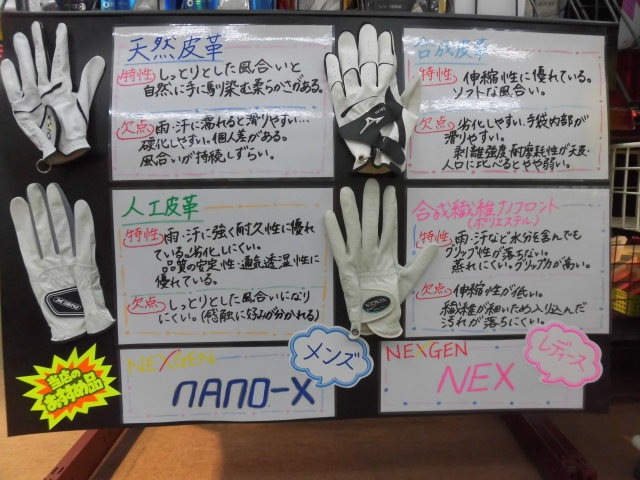 天然皮革
特性 しっとりとした風合いと
自然に手に馴染む柔らかさがある。
欠点 雨・汗に濡れると滑りやすい…
硬化しやすい。個人差がある。
風合いが持続しずらい。
合成皮革
特性 伸縮性に優れている。
ソフトな風合い。
欠点 劣化しやすい。手袋内部が
滑りやすい。
剥離強度・耐摩耗性が天皮・
人口に比べるとやや弱い。
人工皮革
特性 雨・汗に強く耐久性に優れ
ている。劣化しにくい。
品質の安定性・通気透湿性に
優れている。
欠点 しっとりとした風合いになり
にくい。(感触に好みが分かれる)
合成繊維ナノフロント
(ポリエステル)
特性 雨・汗など水分を含んでも
グリップ性が落ちない。
蒸れにくい。グリップ力が高い。
欠点 伸縮性が低い。
繊維が細いため入り込んだ
汚れが落ちにくい。
当店の
おすすめ品
NEXGEN
メンズ
NANO-X
NEXGEN
レディース
NEX